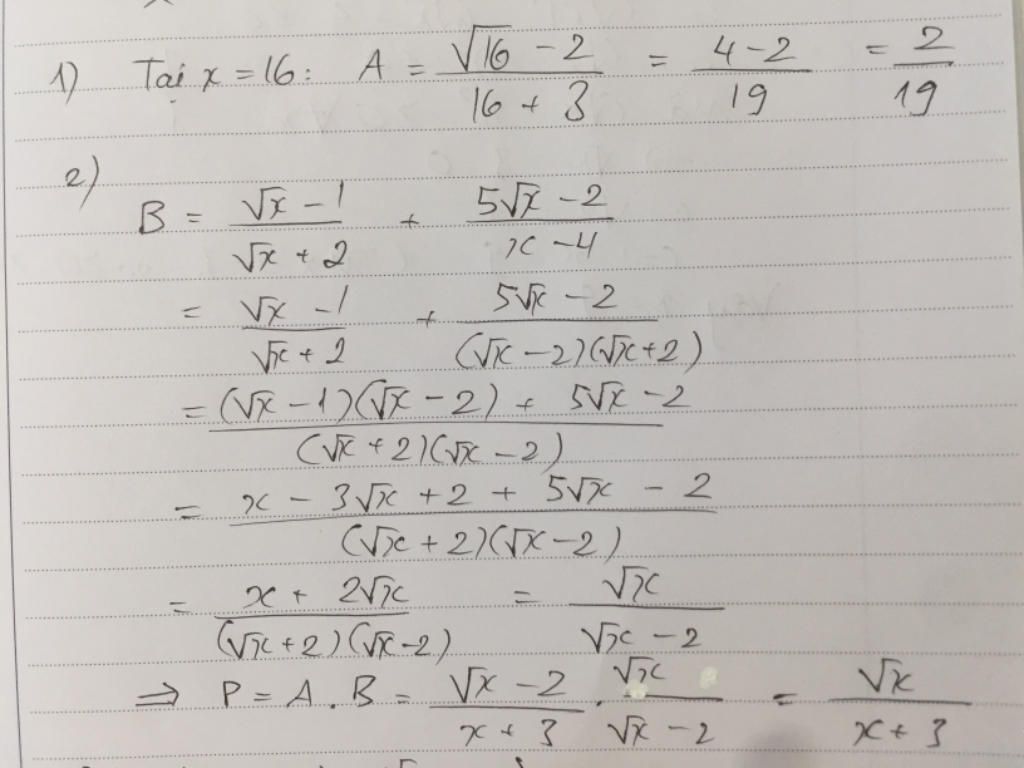 1) Tại x = 16: A = (√16 - 2)/(16 + 3) = (4 - 2)/19 = 2/19
2)
B = (√x - 1)/(√x + 2) + (5√x - 2)/(x - 4)
= (√x - 1)/(√x + 2) + (5√x - 2)/((√x - 2)(√x + 2))
= ((√x - 1)(√x - 2) + 5√x - 2)/((√x + 2)(√x - 2))
= (x - 3√x + 2 + 5√x - 2)/((√x + 2)(√x - 2))
= (x + 2√x)/((√x + 2)(√x - 2)) = √x/(√x - 2)
⇒ P = A . B = (√x - 2)/(x + 3) . √x/(√x - 2) = √x/(x + 3)